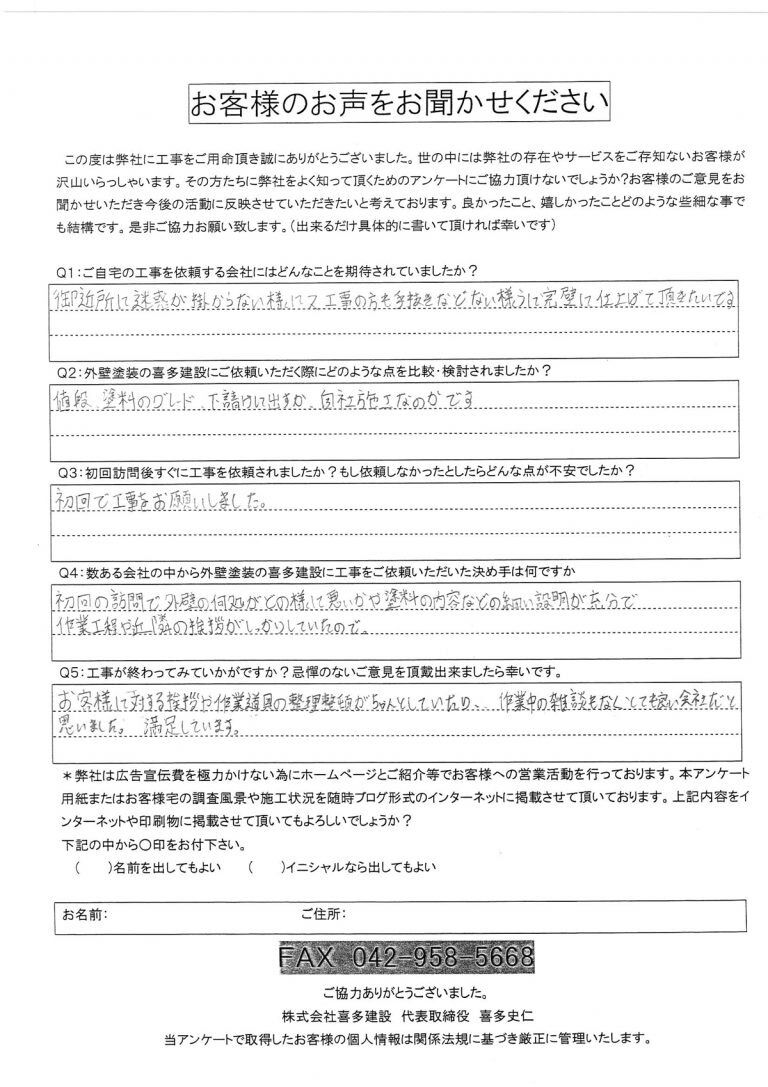 お客様のお声をお聞かせください
この度は弊社に工事をご用命頂き誠にありがとうございました。世の中には弊社の存在やサービスをご存知ないお客様が
沢山いらっしゃいます。その方たちに弊社をよく知って頂くためのアンケートにご協力頂けないでしょうか?お客様のご意見をお
聞かせいただき今後の活動に反映させていただきたいと考えております。良かったこと、嬉しかったことどのような些細な事で
も結構です。是非ご協力お願い致します。(出来るだけ具体的に書いて頂ければ幸いです)
Q1:ご自宅の工事を依頼する会社にはどんなことを期待されていましたか?
御近所に迷惑が掛からない様に又工事の方も手抜きなどない様うに完璧に仕上げて頂きたいでる
Q2:外壁塗装の喜多建設にご依頼いただく際にどのような点を比較・検討されましたか?
値段、塗料のグレード、下請けに出すか、自社施工なのかです
Q3:初回訪問後すぐに工事を依頼されましたか?もし依頼しなかったとしたらどんな点が不安でしたか?
初回で工事をお願いしました。
Q4:数ある会社の中から外壁塗装の喜多建設に工事をご依頼いただいた決め手は何ですか
初回の訪問で外壁の何処がどの様に悪いかや塗料の内容などの細い説明が充分で
作業工程や近隣の挨拶がしっかりしていたので。
Q5:工事が終わってみていかがですか?忌憚のないご意見を頂戴出来ましたら幸いです。
お客様に対する挨拶や作業道具の整理整頓がちゃんとしていたり、作業中の雑談もなくとても良い会社だと
思いました。満足しています。
*弊社は広告宣伝費を極力かけない為にホームページとご紹介等でお客様への営業活動を行っております。本アンケート
用紙またはお客様宅の調査風景や施工状況を随時ブログ形式のインターネットに掲載させて頂いております。上記内容をイ
ンターネットや印刷物に掲載させて頂いてもよろしいでしょうか?
下記の中から○印をお付下さい。
( )名前を出してもよい ( )イニシャルなら出してもよい
お名前: ご住所:
FAX 042-958-5668
ご協力ありがとうございました。
株式会社喜多建設 代表取締役 喜多史仁
当アンケートで取得したお客様の個人情報は関係法規に基づき厳正に管理いたします。